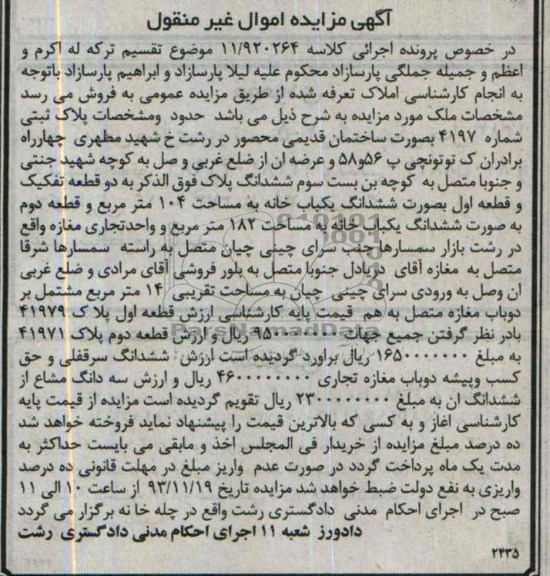 آگهی مزایده اموال غیر منقول
در خصوص پرونده اجرائی کلاسه ۱۱/۹۲۰۲۶۴ موضوع تقسیم ترکه له اکرم و
اعظم و جمیله جملگی پارسازاد محکوم علیه لیلا پارسازاد و ابراهیم پارسازاد باتوجه
به انجام کارشناسی املاک تعرفه شده از طریق مزایده عمومی به فروش می رسد
مشخصات ملک مورد مزایده به شرح ذیل می باشد حدود ومشخصات پلاک ثبتی
شماره ۴۱۹۷ بصورت ساختمان قدیمی محصور در رشت خ شهید مطهری چهارراه
برادران ک توتونچی پ ۵۶و۵۸ و عرضه ان از ضلع غربی و صل به کوچه شهید جنتی
و جنوبا متصل به کوچه بن بست سوم ششدانگ پلاک فوق الذکر به دو قطعه تفکیک
و قطعه اول بصورت ششدانگ یکباب خانه به مساحت ۱۰۴ متر مربع و قطعه دوم
به صورت ششدانگ یکباب خانه به مساحت ۱۸۲ متر مربع و واحدتجاری مغازه واقع
در رشت بازار سمسارها جنب سرای چینی چیان متصل به راسته سمسارها شرقا
متصل به مغازه آقای دریادل جنوبا متصل به بلور فروشی آقای مرادی و ضلع غربی
ان وصل به ورودی سرای چینی چیان به مساحت تقریبی ۱۴ متر مربع مشتمل بر
دوباب مغازه متصل به هم قیمت پایه کارشناسی ارزش قطعه اول پلا ک ۴۱۹۷۹
بادر نظر گرفتن جمیع جهات ریال و ارزش قطعه دوم پلاک ۴۱۹۷۱
به مبلغ ۱۶۵۰۰۰۰۰۰۰ ریال براورد گردیده است ارزش ششدانگ سرقفلی و حق
کسب وپیشه دوباب مغازه تجاری ۴۶۰۰۰۰۰۰۰۰ ریال و ارزش سه دانگ مشاع از
ششدانگ ان به مبلغ ۲۳۰۰۰۰۰۰۰۰ ریال تقویم گردیده است مزایده از قیمت پایه
کارشناسی اغاز و به کسی که بالاترین قیمت را پیشنهاد نماید فروخته خواهد شد
ده درصد مبلغ مزایده از خریدار فی المجلس اخذ و مابقی می بایست حداکثر به
مدت یک ماه پرداخت گردد در صورت عدم واریز مبلغ در مهلت قانونی ده درصد
واریزی به نفع دولت ضبط خواهد شد مزایده تاریخ ۹۳/۱۱/۱۹ از ساعت ۱۰ الی ۱۱
صبح در اجرای احکام مدنی دادگستری رشت واقع در چله خا نه برگزار می گردد
دادورز شعبه ۱۱ اجرای احکام مدنی دادگستری رشت
۲۴۳۵
ParsNamadData